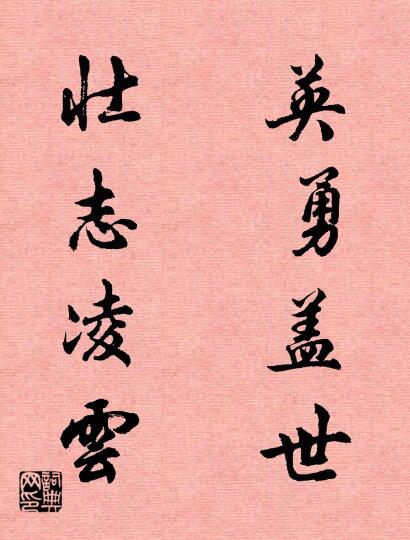 英勇盖世
壮志凌雲
詞典网印